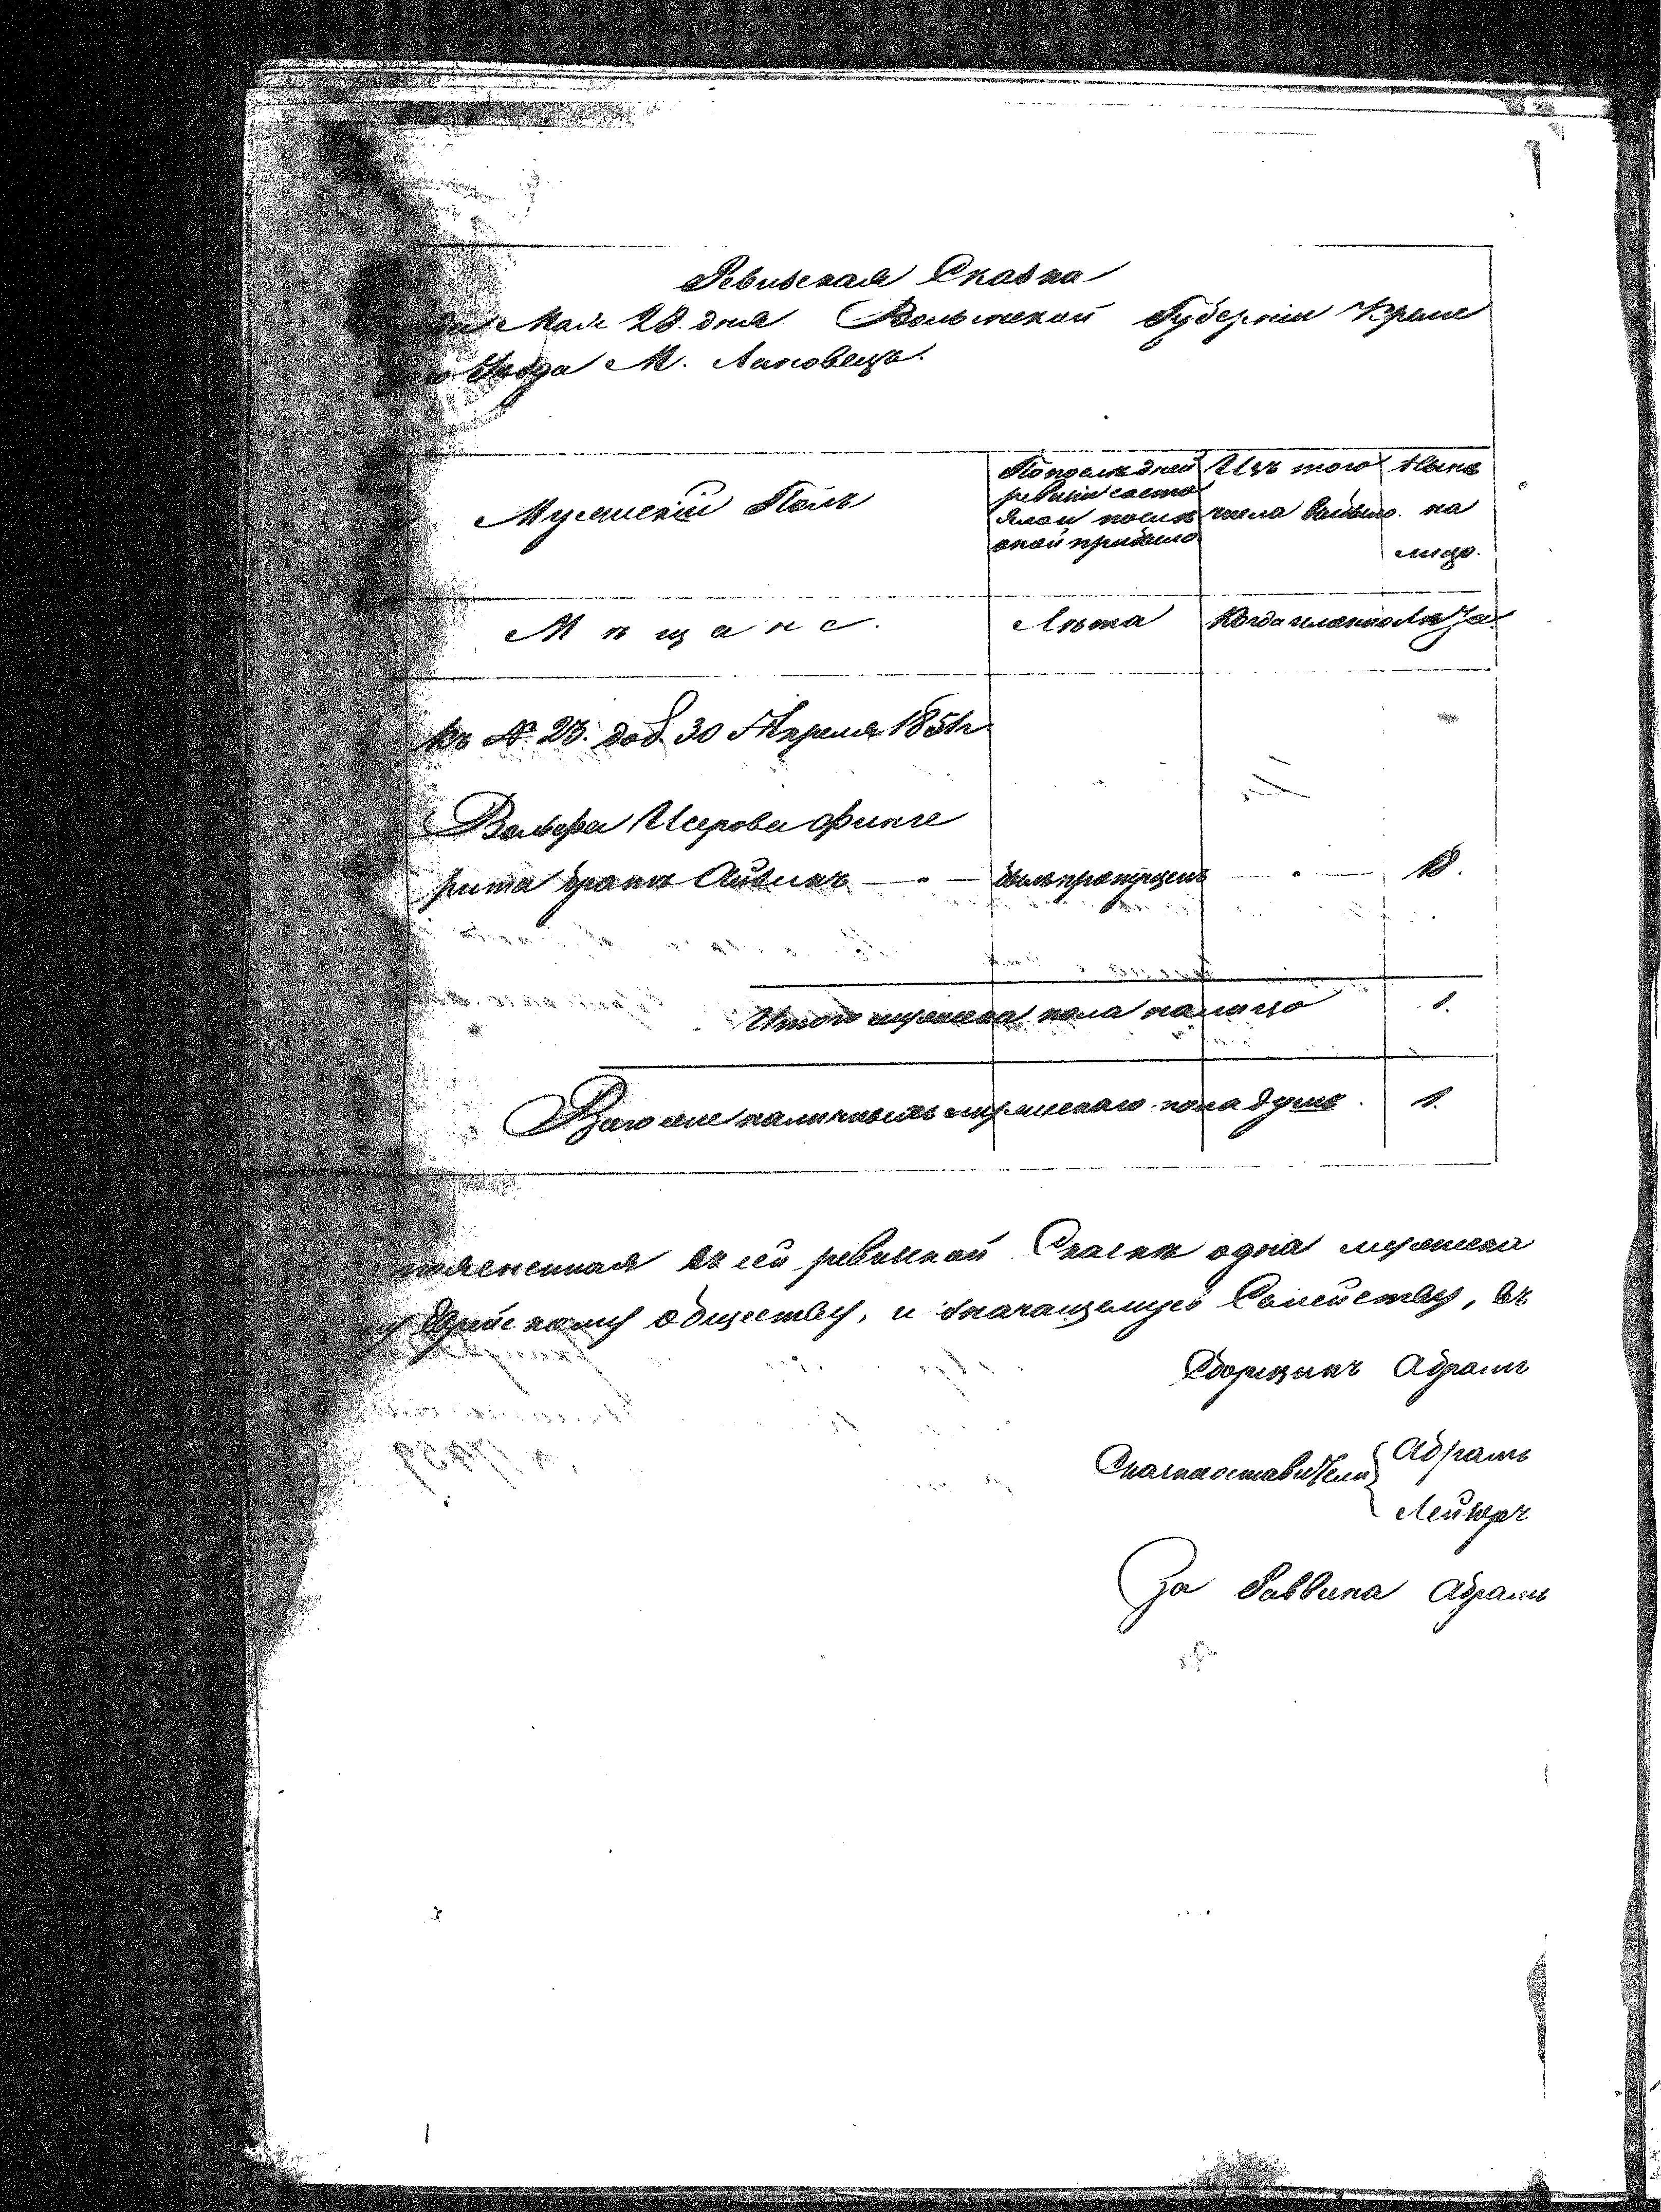 Ревизская Сказка
да Мая 28. дня Волынской Губерніи Креме
Уезда М. Лановецъ.
Мужескій Полъ
По послѣдней ревизіи состо ялои послѣ оной прибыло
Изъ того числа выбыло.
Нынѣ на лицо.
Мѣщане.
Лѣта
Когда именно
Лѣта
къ № 23. доб. 30 Апреля 1851 г.
Вольфа Исерова Финге
рита братъ Айзикъ — " — былъ пропущенъ — " — 18.
Итого мужеска пола налицо 1.
Всего же наличныхъ мужескаго пола душъ. 1.
поясненная въ сей ревизкой Сказкѣ одна мужеска
Еврейскому обществу, и значащемуся Семейству, въ
Сборщикъ Абрамъ
Сказкоставители { Абрамъ
Лейзоръ
За Раввина Абрамъ